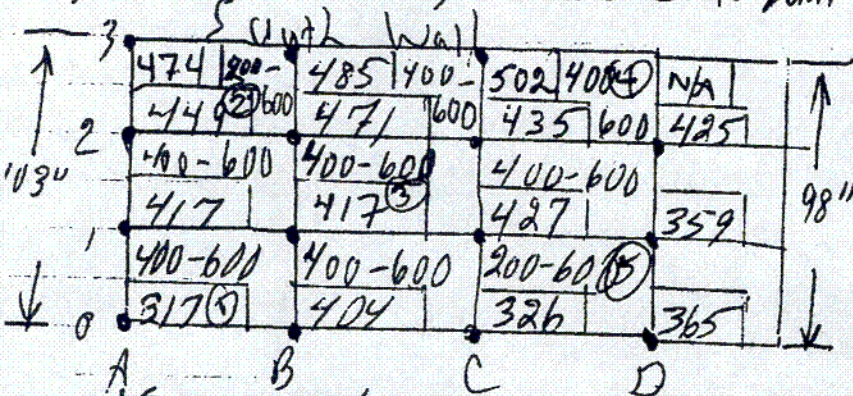 3 South Wall
474 200- 485 400- 502 400 4 N/A
449 2 600 471 600 435 600 425
2
400-600 400-600 400-600
"03" 417 417 3 427 359 98"
1
400-600 400-600 200-60
317 1 404 326 365
0
A B C D